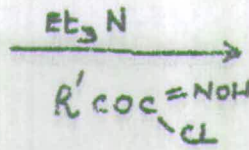 Et₃N
R'COC=NOH
Cl